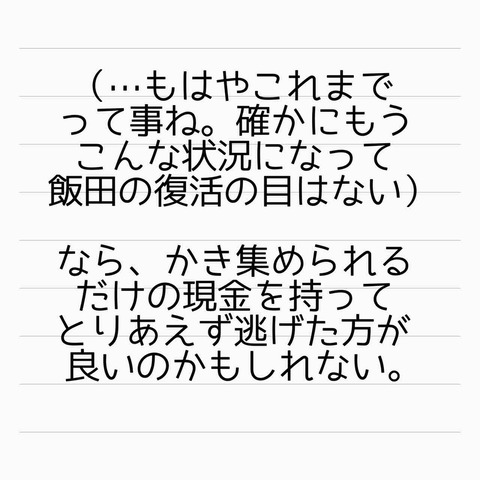 （…もはやこれまで
って事ね。確かにもう
こんな状況になって
飯田の復活の目はない）
なら、かき集められる
だけの現金を持って
とりあえず逃げた方が
良いのかもしれない。